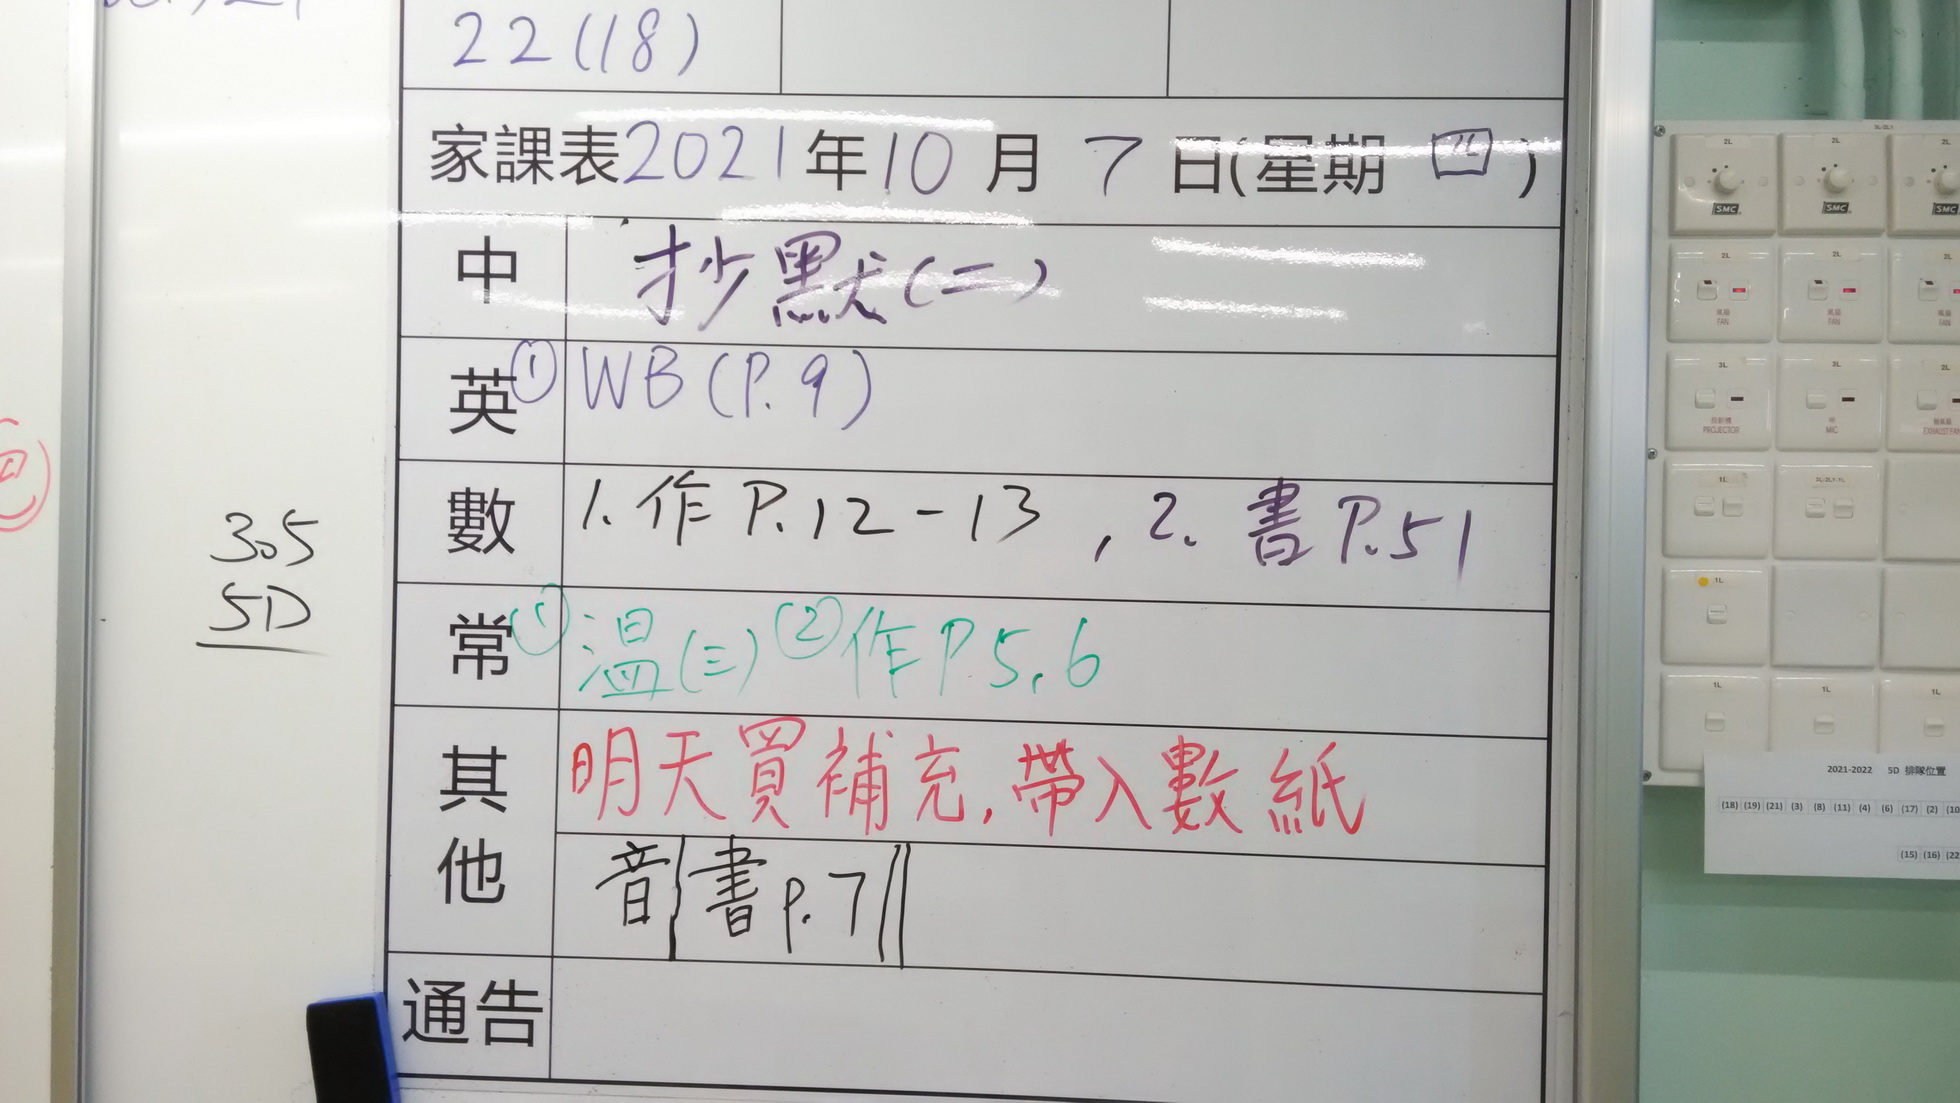 22(18)
家課表2021年10月7日(星期四)
中 抄默(二)
英 ① WB(P.9)
數 1.作P.12-13, 2.書P.51
305
5D
常 ① 溫(三) ② 作P5,6
其他 明天買補充,帶入數紙
音 書p.7
通告
2L 2L 2L
SMC SMC SMC
2L 2L 2L
風扇 風扇 風扇
FAN FAN FAN
3L 3L 2L
投影機 咪 抽氣扇
PROJECTOR MIC EXHAUST FAN
1L
1L
1L 1L 1L
2021-2022 5D 排隊位置
(18) (19) (21) (3) (8) (11) (4) (6) (17) (2) (10
(15) (16) (22